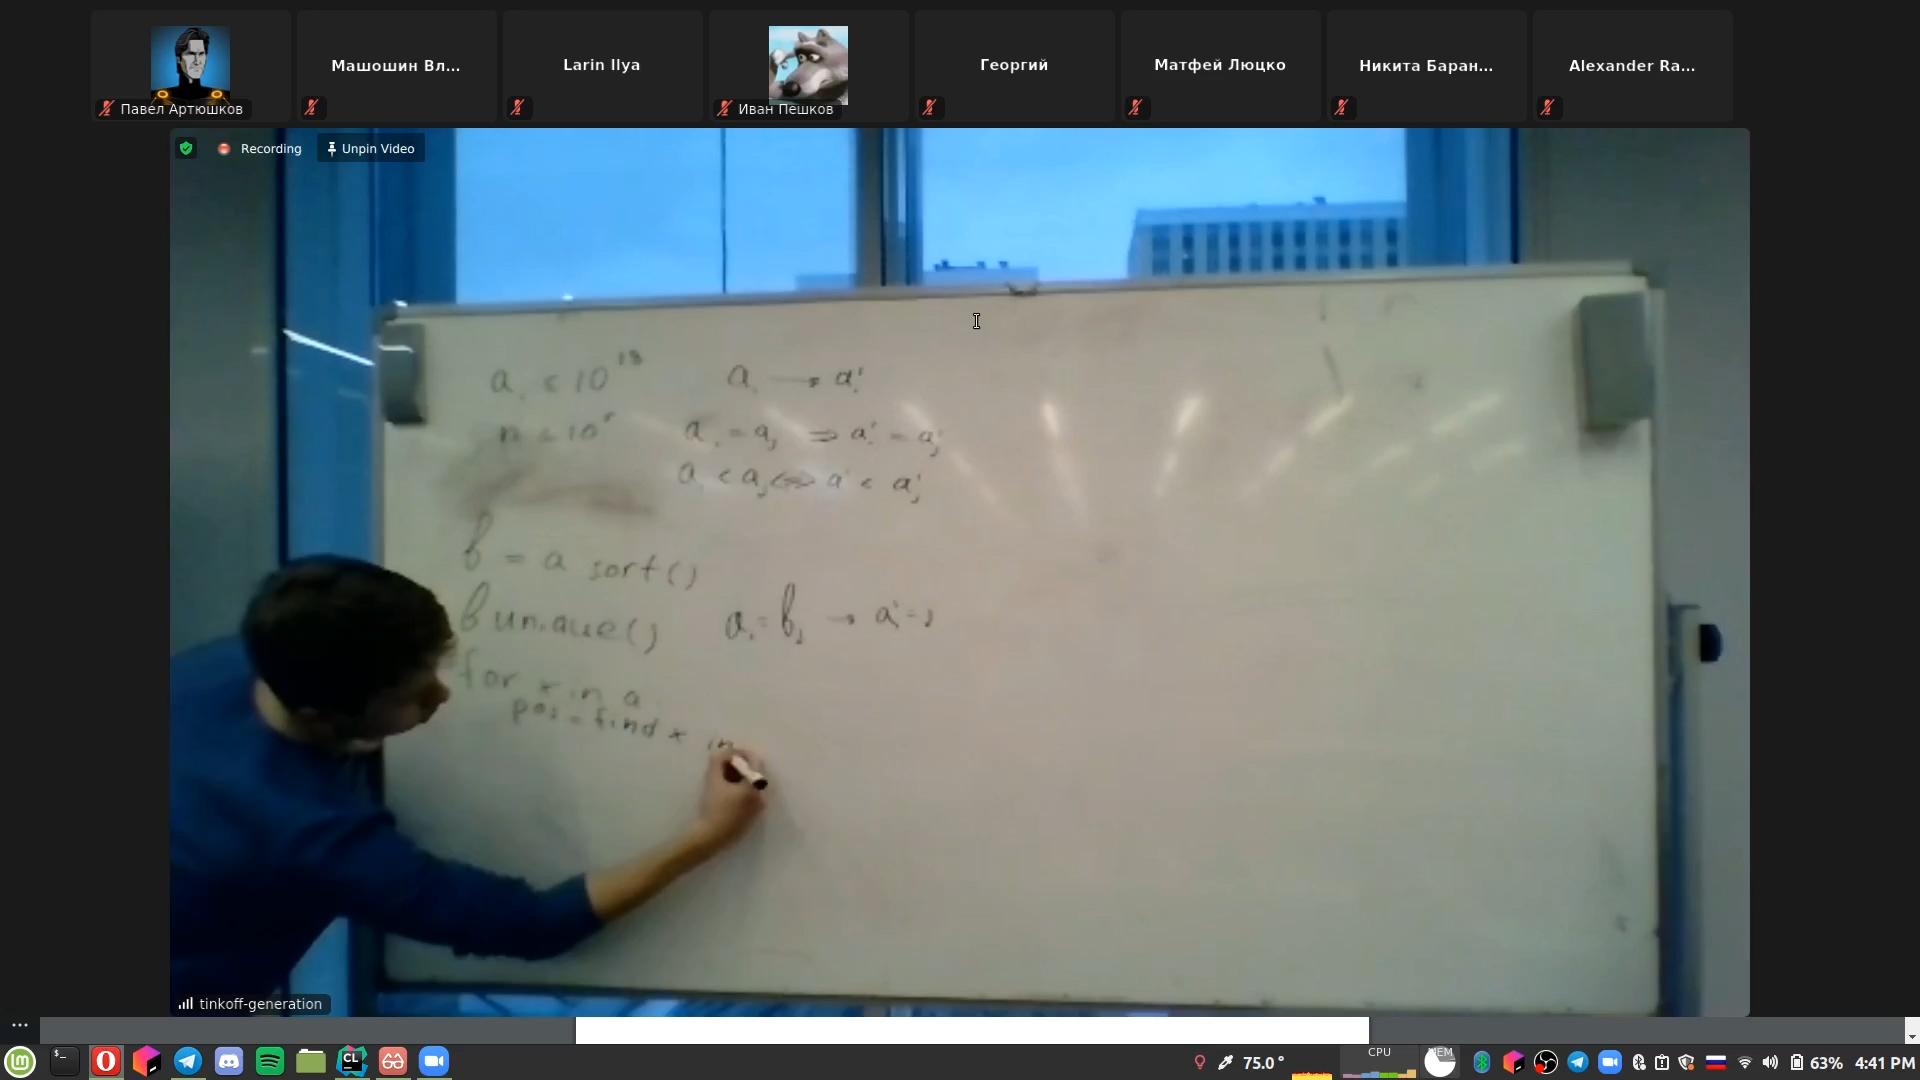 Павел Артюшков
Машошин Вл...
Larin Ilya
Иван Пешков
Георгий
Матфей Люцко
Никита Баран...
Alexander Ra...
Recording
Unpin Video
a_i < 10^18 a_i → a_i'
n ≤ 10^5 a_i = a_j ⇒ a_i' = a_j'
a_i < a_j ⇔ a_i' < a_j'
b = a sort()
b unique() a_i = b_j → a_i' = j
for x in a
pos = find x in
tinkoff-generation
75.0°
CPU
MEM
63%
4:41 PM